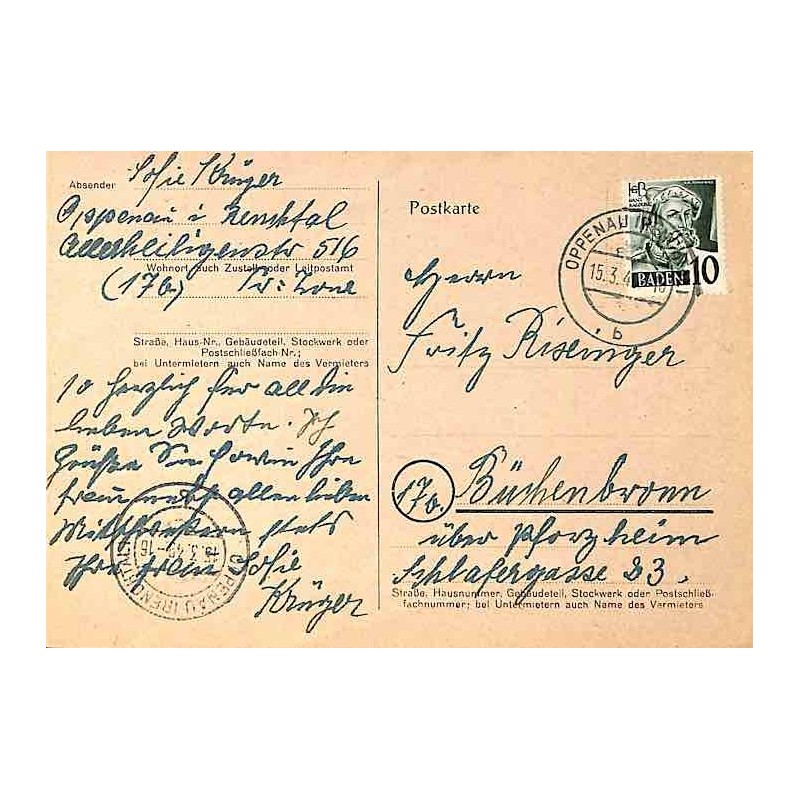 Absender Sofie Krüger
Oppenau i Renchtal
Allerheiligenstr 516
Wohnort, auch Zustell- oder Leitpostamt
(17b) Fr: Zone
Straße, Haus-Nr., Gebäudeteil, Stockwerk oder
Postschließfach-Nr.;
bei Untermietern auch Name des Vermieters
so herzlich für all die
lieben Worte. Ich
Grüße Sie sowie Ihre
Frau nebst allen lieben
stets
Ihre treue Sofie
Krüger
OPPENAU (RENCHTAL)
15.3.48-16
Postkarte
HANS BALDUNG
BADEN 10
OPPENAU (RENCHTAL)
15.3.4
b
Herrn
Fritz Risinger
17a. Büchenbronn
über Pforzheim
Schlafergasse 23.
Straße, Hausnummer, Gebäudeteil, Stockwerk oder Postschließ-
fachnummer; bei Untermietern auch Name des Vermieters